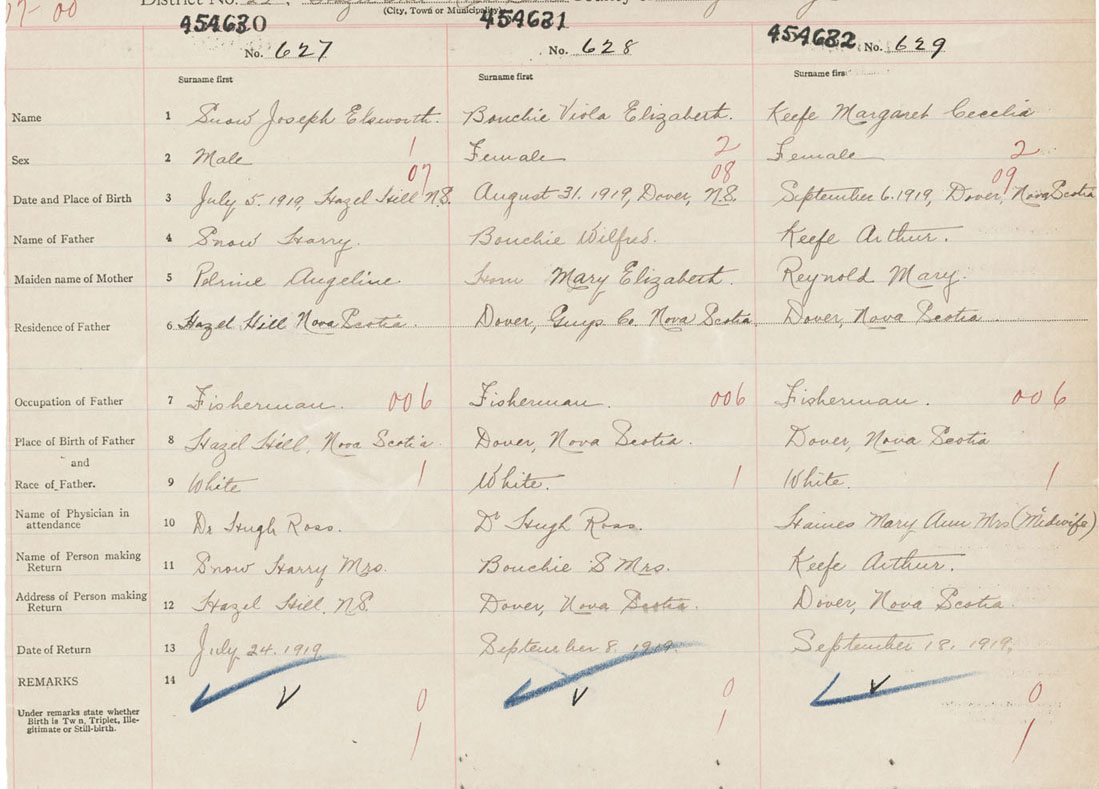 07-00 District No. 22,
(City, Town or Municipality)
454630 454631 454632
No. 627 No. 628 No. 629
Surname first Surname first Surname first
Name 1 Snow Joseph Elsworth. Bouchie Viola Elizabeth. Keefe Margaret Cecelia
Sex 2 Male 1 Female 2 Female 2
07 08 09
Date and Place of Birth 3 July 5. 1919, Hazel Hill N.S. August 31. 1919, Dover, N.S. September 6. 1919, Dover, Nova Scotia
Name of Father 4 Snow Harry. Bouchie Wilfred. Keefe Arthur.
Maiden name of Mother 5 Angeline. Mary Elizabeth. Reynold Mary.
Residence of Father 6 Hazel Hill Nova Scotia. Dover, Guys Co. Nova Scotia. Dover, Nova Scotia.
Occupation of Father 7 Fisherman. 006 Fisherman. 006 Fisherman. 006
Place of Birth of Father 8 Hazel Hill, Nova Scotia. Dover, Nova Scotia. Dover, Nova Scotia
and
Race of Father. 9 White 1 White. 1 White. 1
Name of Physician in attendance 10 Dr Hugh Ross. Dr Hugh Ross. Haines Mary Ann Mrs (Midwife)
Name of Person making Return 11 Snow Harry Mrs. Bouchie S Mrs. Keefe Arthur.
Address of Person making Return 12 Hazel Hill, N.S. Dover, Nova Scotia. Dover, Nova Scotia.
Date of Return 13 July 24. 1919 September 8. 1919. September 18. 1919.
REMARKS 14
Under remarks state whether Birth is Tw n, Triplet, Ille-
gitimate or Still-birth.
0 0 0
1 1 1